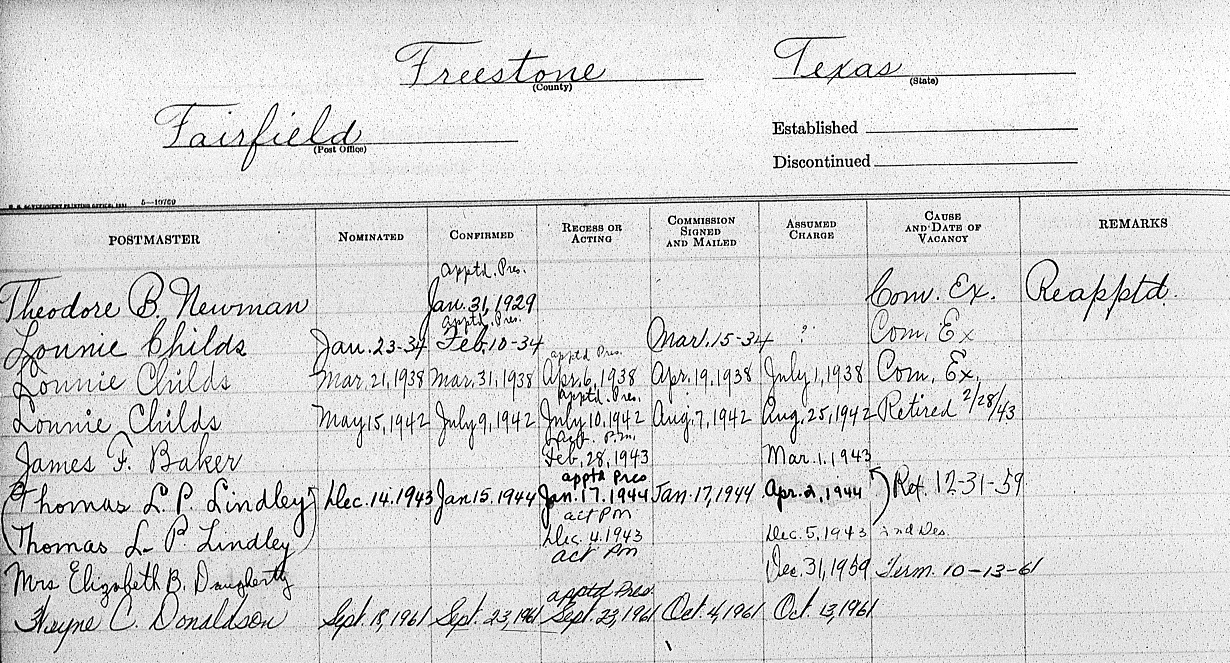 Freestone Texas
(County) (State)
Fairfield
(Post Office)
Established
Discontinued
U. S. GOVERNMENT PRINTING OFFICE: 1931 5—10769
POSTMASTER NOMINATED CONFIRMED RECESS OR ACTING COMMISSION SIGNED AND MAILED ASSUMED CHARGE CAUSE AND DATE OF VACANCY REMARKS
apptd. Pres.
Theodore B. Newman Jan. 31, 1929 Com. Ex. Reapptd.
apptd. Pres.
Lonnie Childs Jan. 23-34 Feb. 10-34 Mar. 15-34 ? Com. Ex
apptd Pres.
Lonnie Childs Mar. 21, 1938 Mar. 31, 1938 Apr. 6, 1938 Apr. 19, 1938 July 1, 1938 Com. Ex.
apptd. Pres.
Lonnie Childs May 15, 1942 July 9, 1942 July 10, 1942 Aug. 7, 1942 Aug. 25, 1942 Retired 2/28/43
Act. P.M.
James F. Baker Feb. 28, 1943 Mar. 1, 1943
apptd Pres
(Thomas L. P. Lindley) Dec. 14. 1943 Jan 15. 1944 Jan. 17. 1944 Jan. 17, 1944 Apr. 2, 1944 Ret. 12-31-59
act PM
(Thomas L. P. Lindley) Dec. 4. 1943 Dec. 5, 1943 Des.
act Pm
Mrs Elizabeth B. Daugherty Dec. 31, 1959 Term. 10-13-61
apptd Pres.
Wayne C. Donaldson Sept. 18, 1961 Sept. 23, 1961 Sept. 23, 1961 Oct. 4, 1961 Oct. 13, 1961